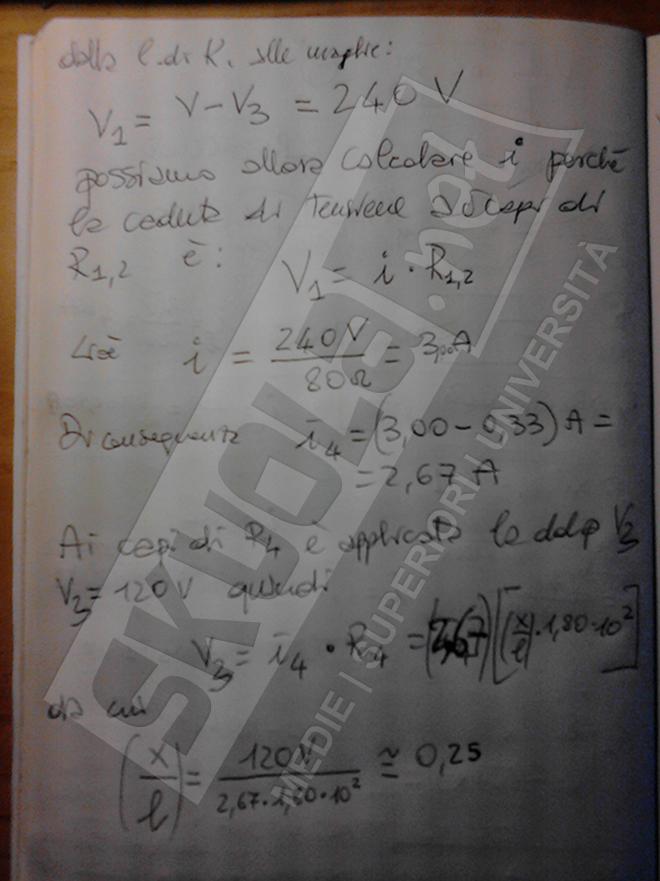 dalla l. di K. alle maglie:
V₁ = V − V₃ = 240 V
possiamo allora calcolare i perché
la caduta di tensione ai capi di
R₁,₂ è: V₁ = i · R₁,₂
cioè i = 240 V / 80 Ω = 3,00 A
Di conseguenza i₄ = (3,00 − 0,33) A =
= 2,67 A
Ai capi di R₄ è applicata la ddp V₃
V₃ = 120 V quindi
V₃ = i₄ · R₄ = (2,67) [(x/l) · 1,80 · 10²]
da cui
(x/l) = 120 V / 2,67 · 1,80 · 10² ≅ 0,25
SKUOLA.net
MEDIE | SUPERIORI | UNIVERSITÀ